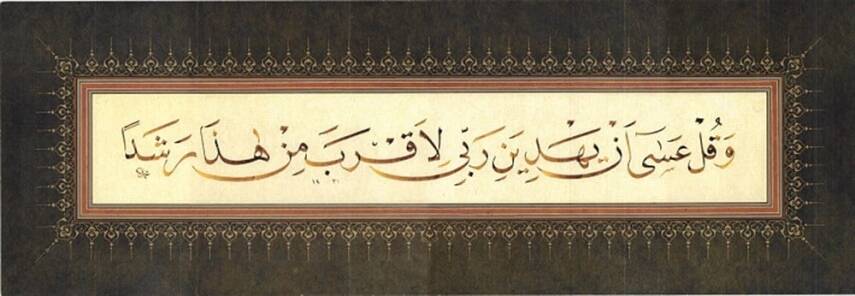 وَقُلْ عَسَىٓ اَنْ يَهْدِيَنِ رَبّ۪ى لِاَقْرَبَ مِنْ هٰذَا رَشَدًا